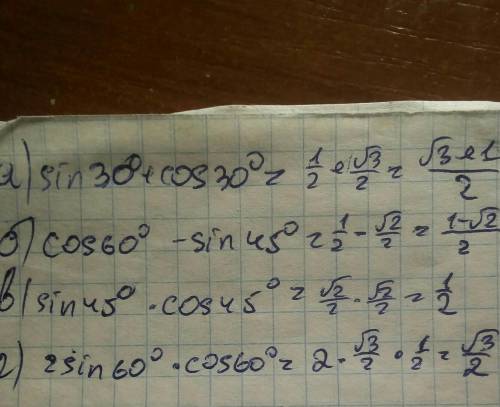 а) sin30°+cos30°= 1/2 + √3/2 = (√3+1)/2
б) cos60° - sin45° = 1/2 - √2/2 = (1-√2)/2
в) sin45° · cos45° = √2/2 · √2/2 = 1/2
г) 2sin60° · cos60° = 2 · √3/2 · 1/2 = √3/2